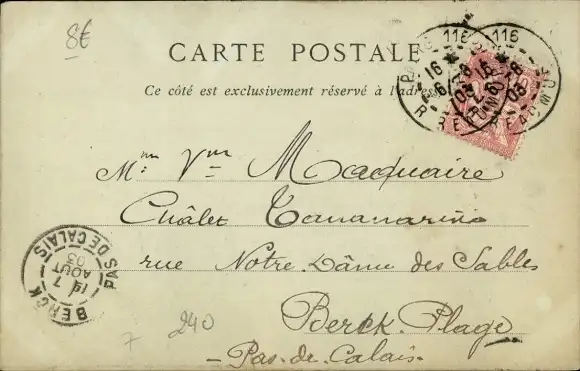 8€
CARTE POSTALE
Ce côté est exclusivement réservé à l'adresse
116
116
Mme Vve Macquaire
Châlet Tananarive
rue Notre-Dame des Sables
Berck-Plage
Pas-de-Calais
BERCK
PAS DE CALAIS
7
AOUT
03
7
240